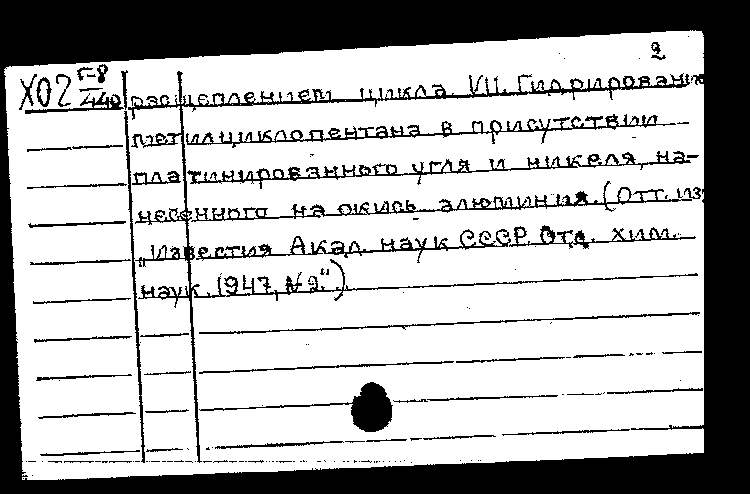 2
Х02 Г-8
440
расщеплением цикла. VII. Гидрирование
метилциклопентана в присутствии
платинированного угля и никеля, на-
несенного на окись алюминия. (Отт. из
„Известия Акад. наук СССР. Отд. хим.
наук. 1947, № 2.")